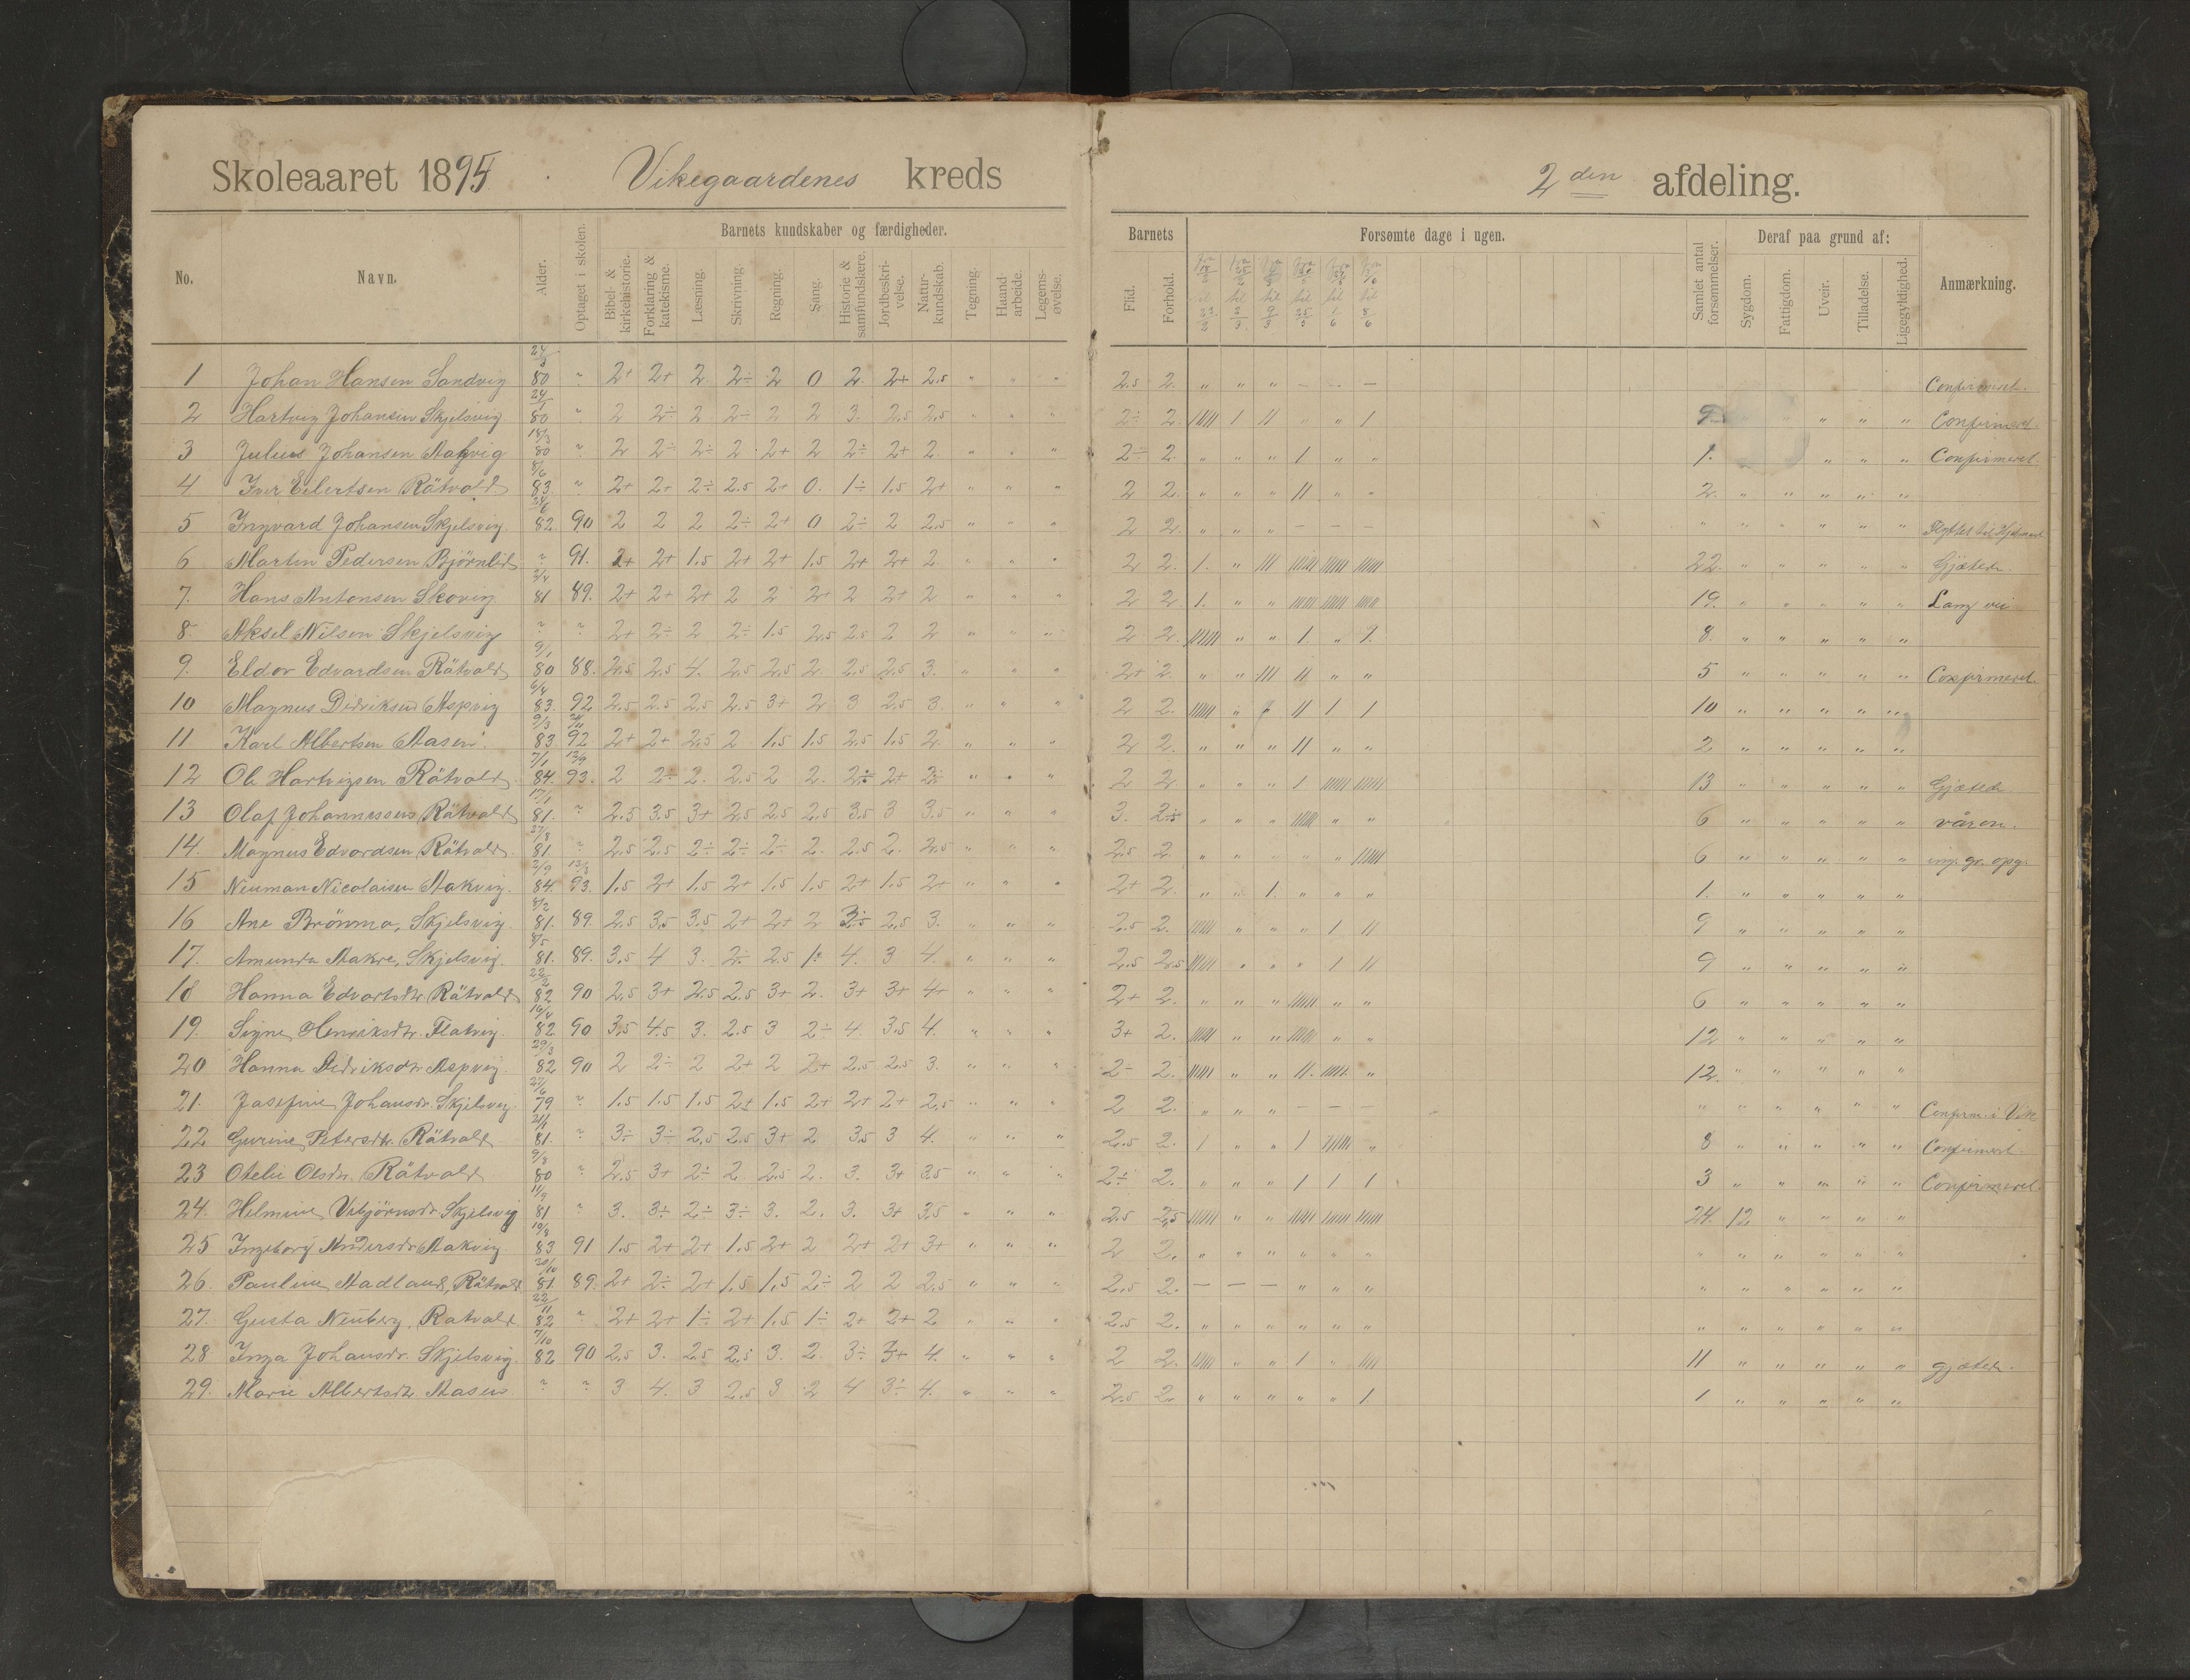 Skoleaaret 1895 Vikegaardenes kreds
2den afdeling.
No. Navn. Alder. Optaget i skolen. Barnets kundskaber og færdigheder.
Bibel- & kirkehistorie. Forklaring & katekisme. Læsning. Skrivning. Regning. Sang. Historie & samfundslære. Jordbeskrivelse. Naturkundskab. Tegning. Haandarbeide. Legemsøvelse.
Barnets Forsømte dage i ugen. Samlet antal forsømmelser. Deraf paa grund af: Anmærkning.
Flid. Forhold. Sygdom. Fattigdom. Uveir. Tilladelse. Ligegyldighed.
1 Johan Hansen Sandvig 80 " 2+ 2+ 2 2÷ 2 0 2 2+ 2.5 " " " 2.5 2. " " " – – – Confirmeret.
2 Hartvig Johansen Skjelsvig 80 " 2 2÷ 2 2÷ 2 2 3. 2.5 2.5 " " " 2÷ 2. 9 Confirmeret.
3 Julius Johansen 80 " 2 2÷ 2÷ 2 2+ 2 2÷ 2+ 2. " " " 2÷ 2. 1. Confirmeret.
4 Iver Eilertsen Rätvold 83. " 2+ 2+ 2÷ 2.5 2+ 0. 1÷ 1.5 2+ " " " 2 2. 2.
5 Ingvard Johansen Skjelsvig. 82. 90 2 2 2 2÷ 2+ 0 2÷ 2 2.5 " " " 2 2. " " " – – –
6 Martin Pedersen Björnlid " 91. 2+ 2+ 1.5 2+ 2+ 1.5 2+ 2+ 2. " " " 2 2. 22. Gjæted.
7. Hans Antonsen Skovig. 81 89. 2+ 2+ 2+ 2 2 2+ 2 2+ 2 " " " 2 2. 19. Lang vei
8. Aksel Nilsen Skjelsvig " " 2+ 2÷ 2 2÷ 1.5 2.5 2.5 2 2 " " " 2 2. 8.
9. Eldor Edvardsen Rätvold 80 88. 2.5 2.5 4. 2.5 2.5 2. 2.5 2.5 3. " " " 2+ 2. 5 Confirmeret.
10 Magnus Didriksen Aspvig 83. 92 2.5 2.5 2.5 2.5 3+ 2 3 2.5 3. " " " 2 2. 10
11 Karl Albertsen Aasen. 83 92 2+ 2+ 2.5 2 1.5 1.5 2.5 1.5 2. " " " 2 2. 2
12 Ole Hartvigsen Rätvold 84. 93. 2 2÷ 2. 2.5 2 2. 2÷ 2+ 2÷ " " " 2 2 13 Gjæted
13 Olaf Johannessen Rätvold 81. " 2.5 3.5 3+ 2.5 2.5 2.5 3.5 3 3.5 " " " 3. 6 våron.
14. Magnus Edvardsen Rätvold. 81 " 2.5 2.5 2÷ 2÷ 2÷ 2. 2.5 2. 2.5 " " " 2.5 2. 6
15 Neuman Nicolaisen Aakvig. 84. 93. 1.5 2+ 1.5 2+ 1.5 1.5 2+ 1.5 2+ " " " 2+ 2. 1.
16 Ane Brönmo, Skjelsvig. 81. 89. 2.5 3.5 3.5 2+ 2+ 2 2.5 3. " " " 2.5 2. 9
17. Amunda Aakre, Skjelsvig. 81. 89. 3.5 4 3. 2÷ 2.5 4. 3 4. " " " 2.5 2.5 9
18 Hanna Edvartsdtr. Rätvold 82 90 2.5 3+ 2.5 2.5 3+ 2. 3+ 3+ 4+ " " " 2+ 2. 6
19. Signe Henriksdtr. Flatvig. 82. 90 3.5 4.5 3. 2.5 3 2÷ 4. 3.5 4. " " " 3+ 2. 12
20 Hanna Didriksdtr. Aspvig. 82 90 2 2÷ 2 2+ 2 2+ 2.5 2.5 3. " " " 2÷ 2. 12.
21. Josefine Johansdr. Skjelsvig 79 " 1.5 1.5 1.5 2+ 1.5 2+ 2+ 2+ 2.5 " " " 2 2. " " " – – – Confirm. i Vik
22 Gurine Petersdtr. Rätvold 81. " 3÷ 3÷ 2.5 2.5 3+ 2 3.5 3 4. " " " 2.5 2. 8 Confirmeret.
23 Otelie Olsdtr. Rätvold 80 " 2.5 3+ 2÷ 2. 2.5 2. 3. 3+ 3.5 " " " 2÷ 2. 3 Confirmeret.
24. Helmine Vebjörnsdr. Skjelsvig 81 " 3. 3÷ 2÷ 3÷ 3. 2. 3. 3+ 3.5 " " " 2.5 2.5 24. 12
25 Ingeborg Andersdr. Aakvig 83 91 1.5 2+ 2+ 1.5 2+ 2 2+ 2+ 3+ " " " 2 2.
26. Pauline Aadland, Rätvold 81. 89. 2+ 2÷ 2+ 1.5 1.5 2÷ 2 2 2.5 " " " 2.5 2. – – – " " "
27. Gusta Neuberg, Ratvold 82 " 2+ 2+ 1÷ 2+ 1.5 1÷ 2+ 2+ 2 " " " 2.5 2.
28. Inga Johansdr. Skjelsvig. 82 90 2.5 3. 2.5 2.5 3. 2. 3÷ 3+ 4. " " " 2 2. 11 gjæted.
29. Marie Albertsdtr. Aasen " " 3 4. 3 2.5 3 2 4 3÷ 4. " " " 2.5 2. 1